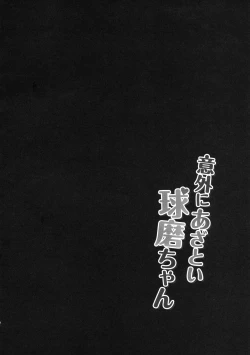 意外にあざとい
球磨ちゃん